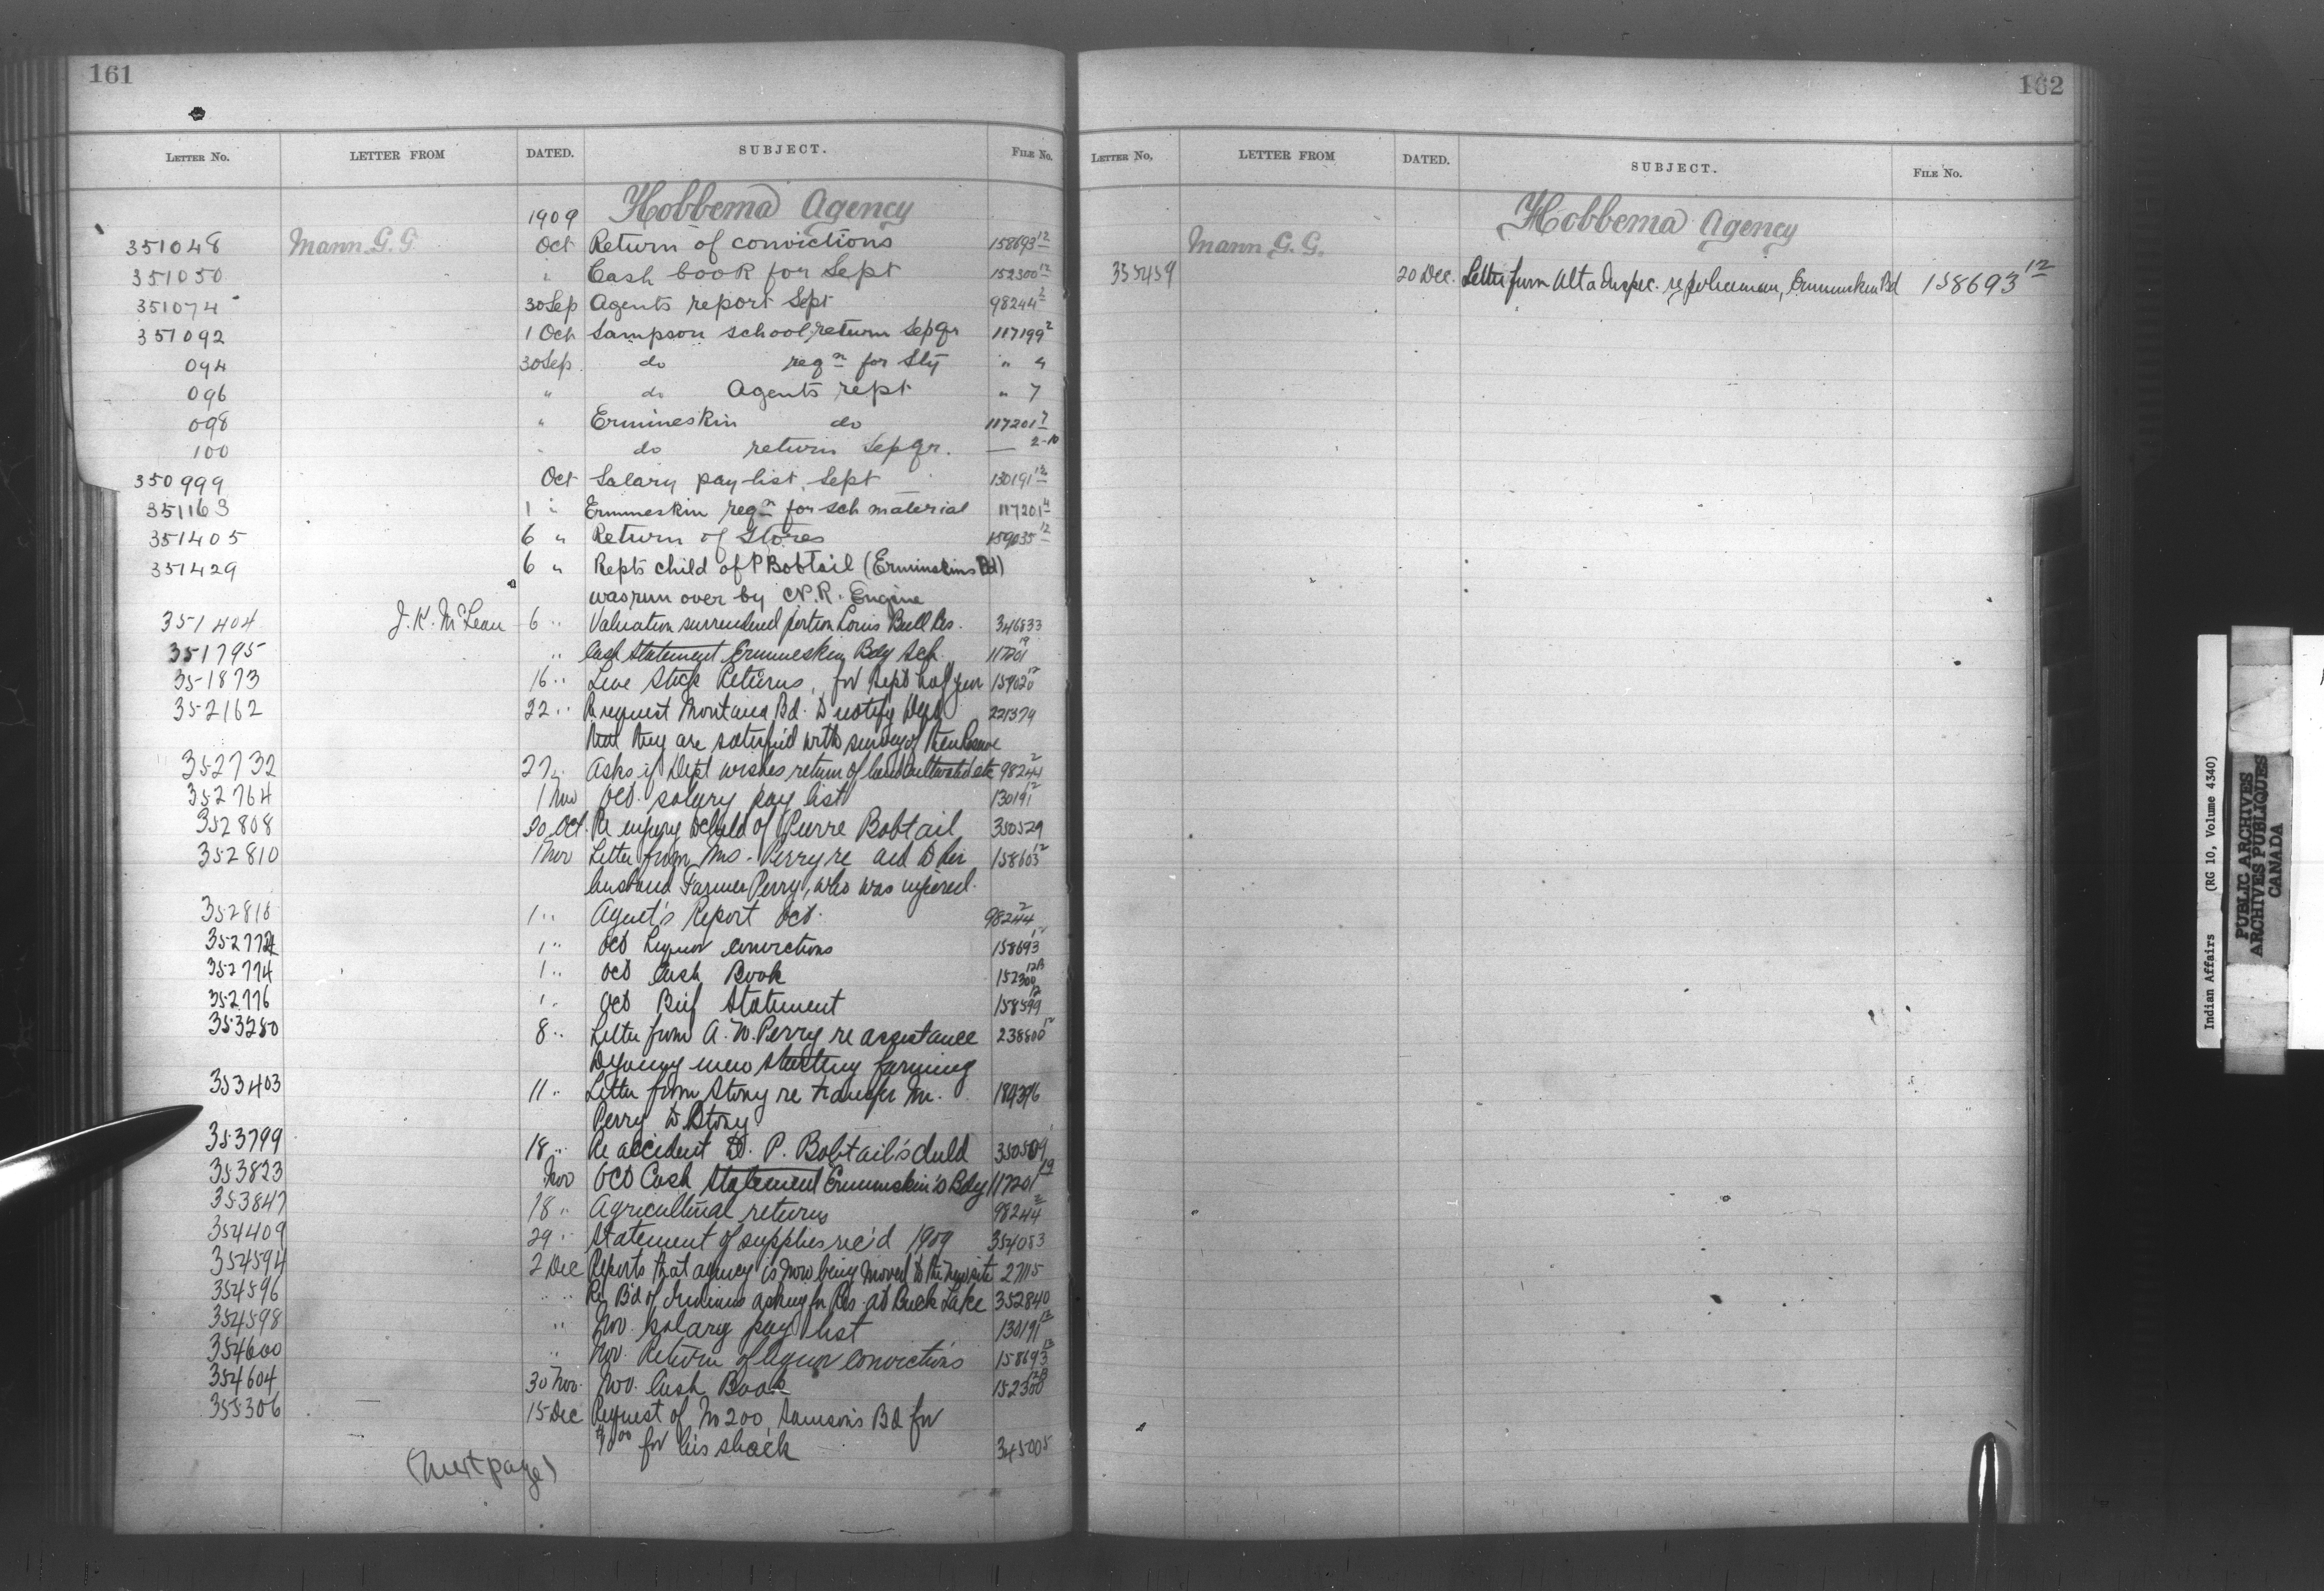 161
LETTER NO. LETTER FROM DATED. SUBJECT. FILE NO.
1909 Hobbema Agency
351048 Mann G. G. Oct Return of convictions 158693 12
351050 " Cash book for Sept 152300 12
351074 30 Sep Agents report Sept 98244 2
351092 1 Oct Sampson school, return Sep qr 117199 2
094 30 Sep do reqn for Sty " 4
096 " do Agents rept " 7
098 " Ermineskin do 117201 7
100 " do return Sep qr. — 2-10
350999 Oct Salary pay-list, Sept 130191 12
351163 1 " Ermineskin reqn for sch material 117201 4
351405 6 " Return of Stores 159035 12
351429 6 " Repts child of P Bobtail (Erminskins Bd)
was run over by C.P.R. Engine
351404 J. K. McLean 6 " Valuation surrendered portion Louis Bull Res. 346833
351795 " Cash Statement Ermineskin Bdg Sch. 117201 19
351873 16 " Live Stock Returns, for Sept half year 159020 12
352162 22 " Re request Montana Bd. to notify Dept 221379
that they are satisfied with survey of their Reserve
352732 27 " Asks if Dept wishes return of land cultivated etc 98244 2
352764 1 Nov Oct. salary pay list 130191 12
352808 20 Oct. Re injury to child of Pierre Bobtail 350529
352810 1 Nov Letter from Mrs. Perry re aid to her 158603 12
husband Farmer Perry, who was injured.
352818 1 " Agent's Report Oct. 98244 2
352772 1 " Oct Liquor convictions 158693 12
352774 1 " Oct Cash Book 152300 12B
352776 1 " Oct Beef Statement 158599 12
353280 8 " Letter from A. W. Perry re assistance 238800 12
to young men starting farming
353403 11 " Letter from Stony re transfer Mr. 189396
Perry to Stony
353799 18 " Re accident to P. Bobtail's child 350529
353823 Nov Oct Cash Statement Ermineskin's Bdg 117201 19
353847 18 " Agricultural returns 98244 2
354409 29 " Statement of supplies rec'd 1909 354083
354594 2 Dec Reports that agency is now being moved to the new site 27115
354596 " " Re Bd of Indians asking for Res. at Buck Lake 352840
354598 " Nov. salary pay list 130191 12
354600 " Nov. Return of liquor convictions 158693 12
354604 30 Nov. Nov. Cash Book 152300 12B
355306 15 Dec Request of No 200, Samson's Bd for
for his shack 345005
(Next page)
162
LETTER NO, LETTER FROM DATED. SUBJECT. FILE NO.
Hobbema Agency
Mann G. G.
355459 20 Dec. Letter from Alta Inspec. re policeman, Ermineskin Bd 158693 12
Indian Affairs (RG 10, Volume 4340)
PUBLIC ARCHIVES
ARCHIVES PUBLIQUES
CANADA